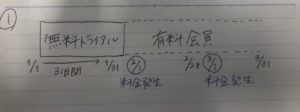 ①
無料トライアル 有料会員
1/1 31日間 1/31 2/1 2/28 3/1 3/31
料金発生 料金発生